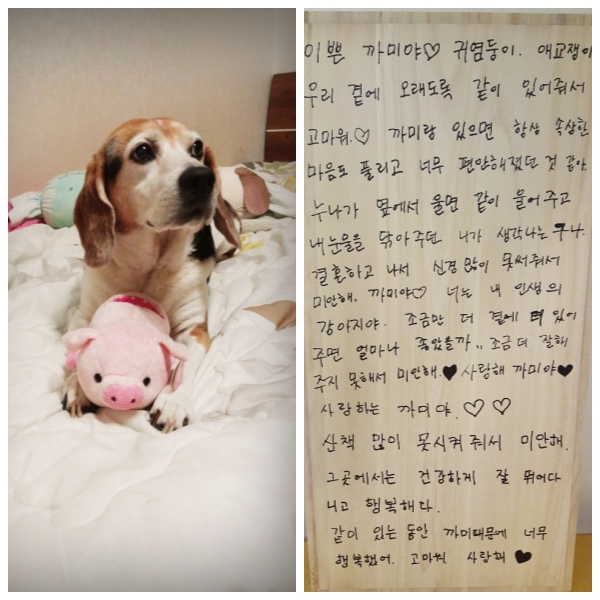 이쁜 까미야♡ 귀염둥이. 애교쟁이
우리 곁에 오래도록 같이 있어줘서
고마워.♡ 까미랑 있으면 항상 속상한
마음도 풀리고 너무 편안해졌던 것 같아.
누나가 옆에서 울면 같이 울어주고
내눈물을 닦아주던 니가 생각나는구나.
결혼하고 나서 신경 많이 못써줘서
미안해. 까미야♡ 너는 내 인생의
강아지야. 조금만 더 곁에 더 있어
주면 얼마나 좋았을까.. 조금 더 잘해
주지 못해서 미안해.♥ 사랑해 까미야♥
사랑하는 까미야. ♡ ♡
산책 많이 못시켜줘서 미안해.
그곳에서는 건강하게 잘 뛰어다
니고 행복해다.
같이 있는 동안 까미때문에 너무
행복했어. 고마워 사랑해 ♥